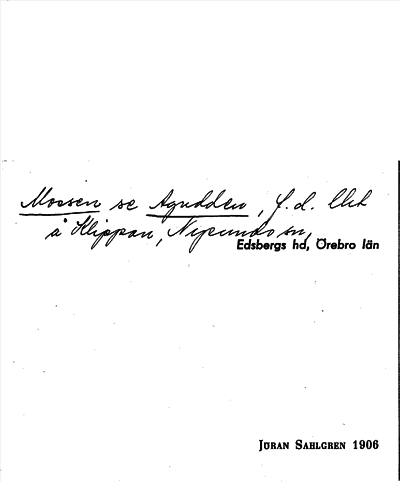 Mossen se Agudden, f.d. lht
å Klippan, Nysunds sn,
Edsbergs hd, Örebro län
JÖRAN SAHLGREN 1906